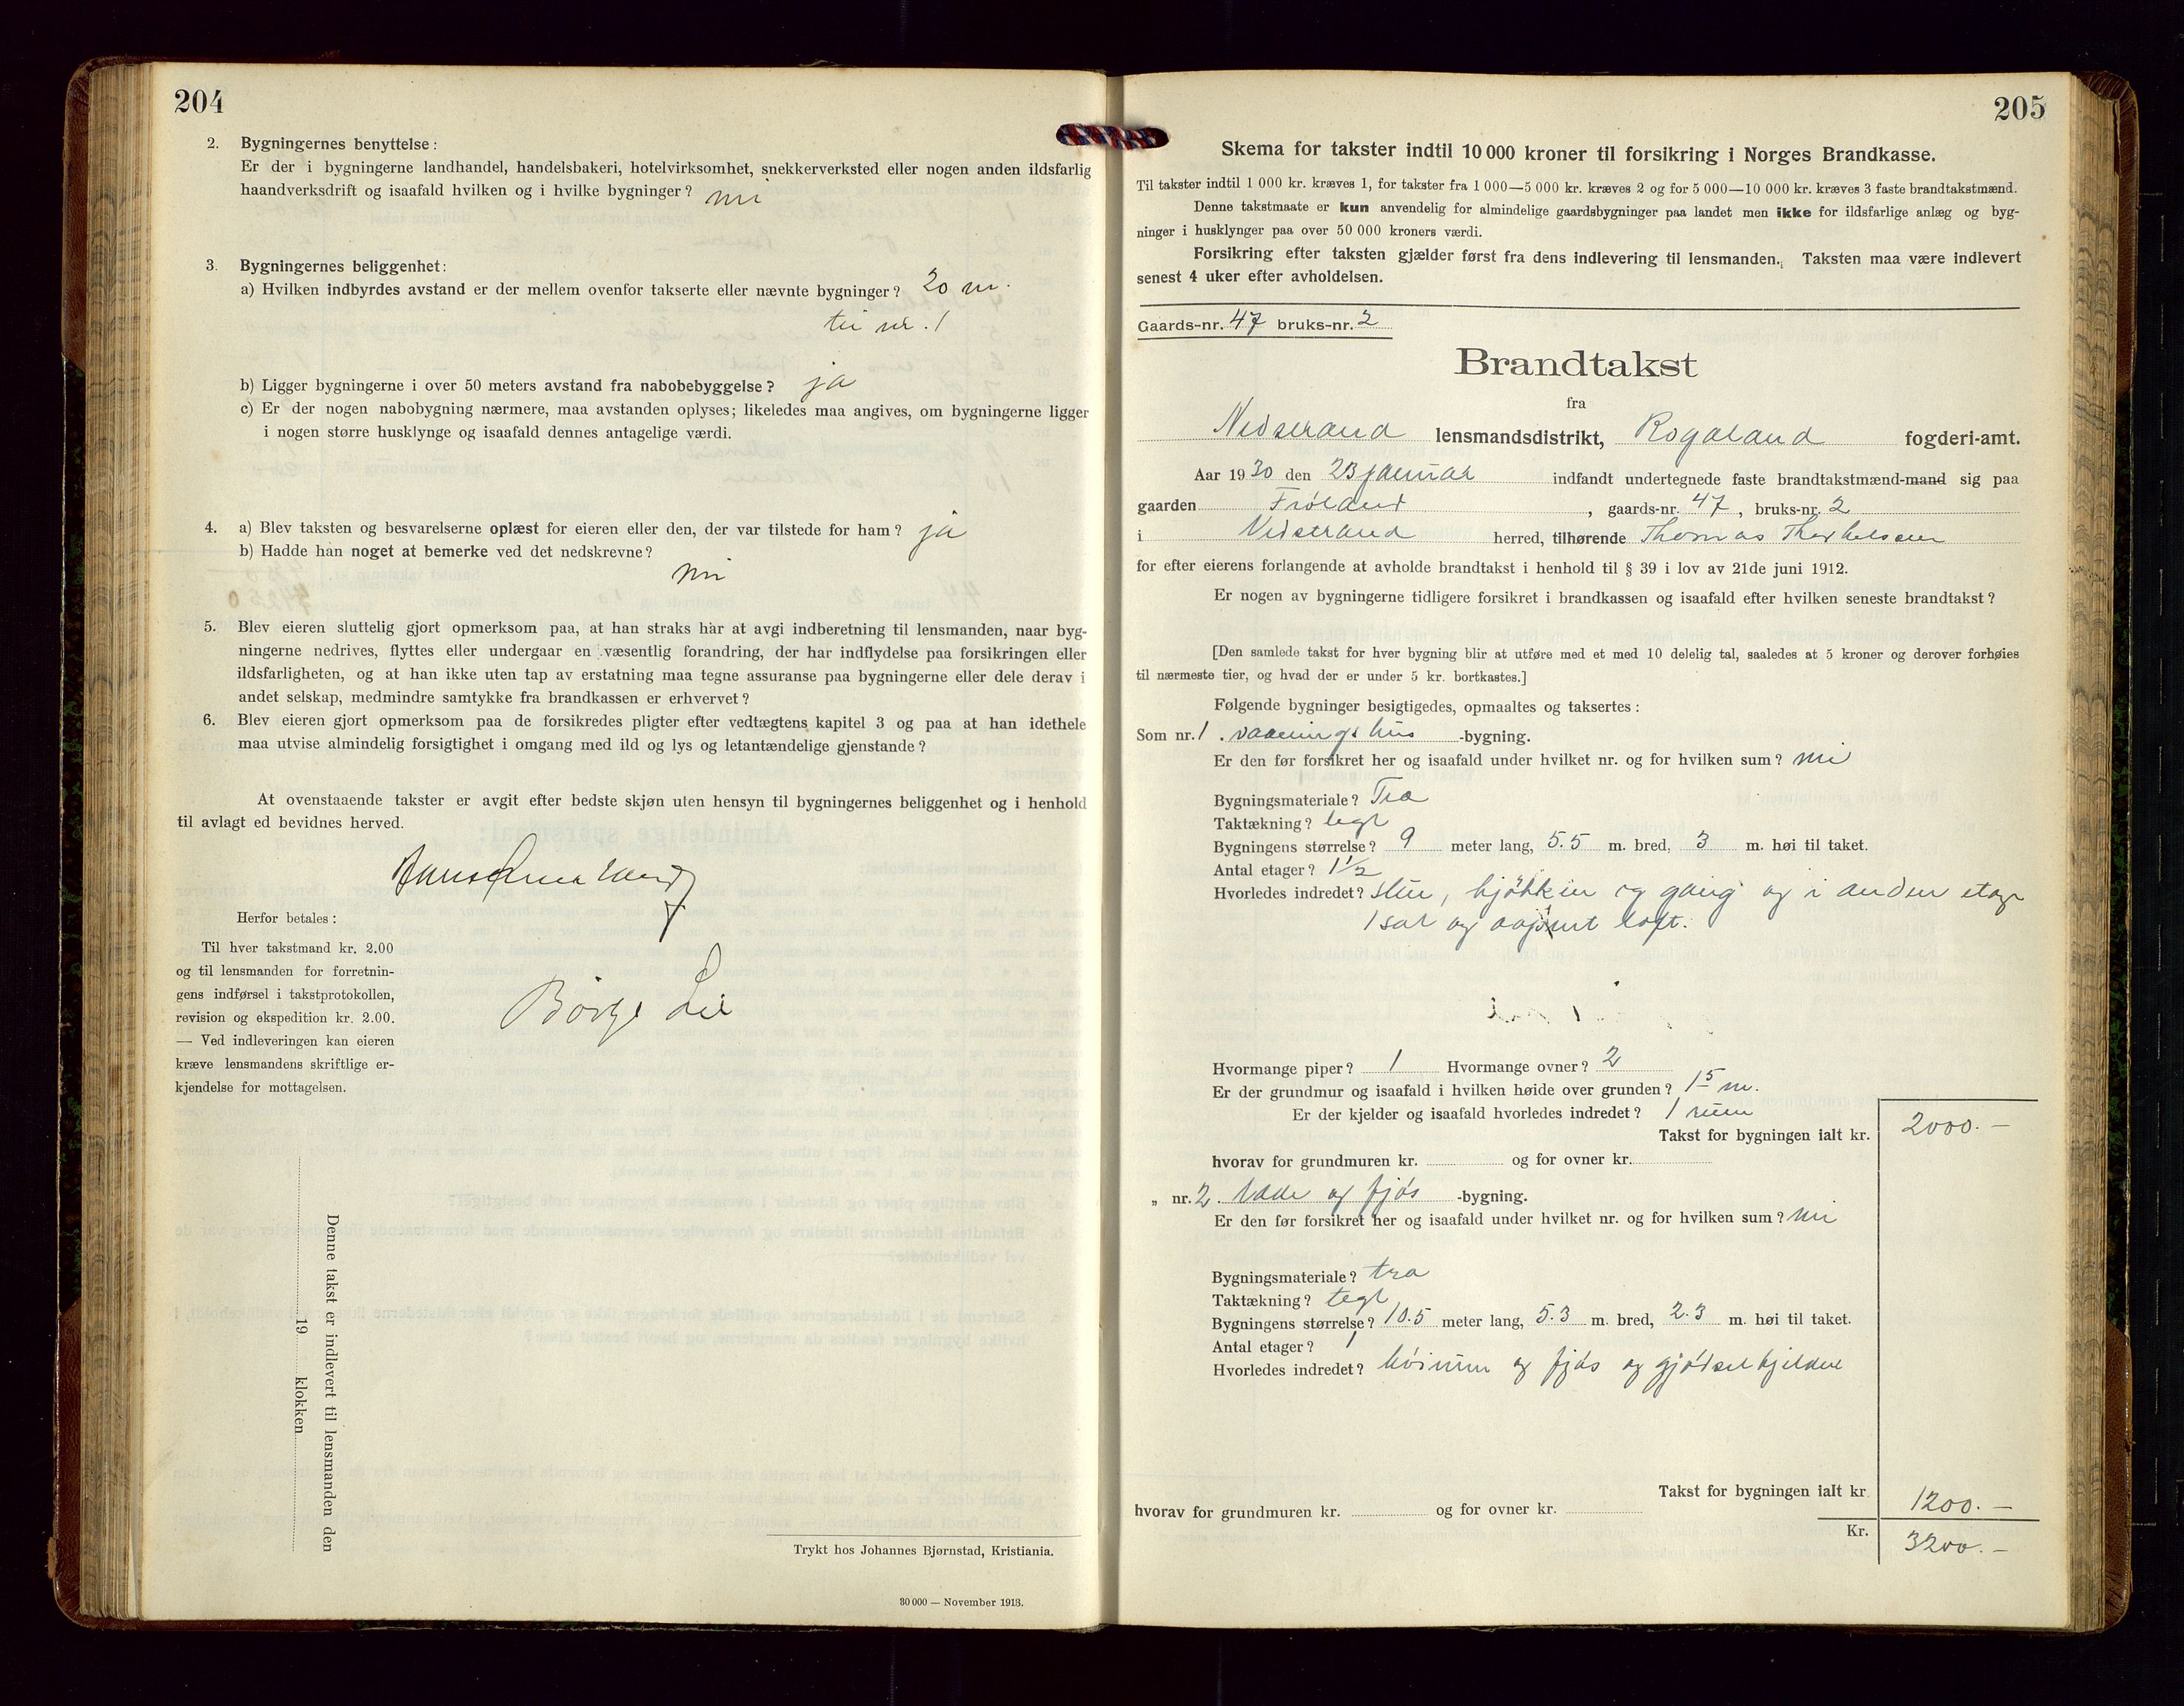 204
2. Bygningernes benyttelse:
Er der i bygningerne landhandel, handelsbakeri, hotelvirksomhet, snekkerverksted eller nogen anden ildsfarlig
haandverksdrift og isaafald hvilken og i hvilke bygninger? nei
3. Bygningernes beliggenhet:
a) Hvilken indbyrdes avstand er der mellem ovenfor takserte eller nævnte bygninger? 20 m.
til nr. 1
b) Ligger bygningerne i over 50 meters avstand fra nabobebyggelse? ja
c) Er der nogen nabobygning nærmere, maa avstanden oplyses; likeledes maa angives, om bygningerne ligger
i nogen større husklynge og isaafald dennes antagelige værdi.
4. a) Blev taksten og besvarelserne oplæst for eieren eller den, der var tilstede for ham? ja
b) Hadde han noget at bemerke ved det nedskrevne?
nei
5. Blev eieren sluttelig gjort opmerksom paa, at han straks har at avgi indberetning til lensmanden, naar byg-
ningerne nedrives, flyttes eller undergaar en væsentlig forandring, der har indflydelse paa forsikringen eller
ildsfarligheten, og at han ikke uten tap av erstatning maa tegne assuranse paa bygningerne eller dele derav i
andet selskap, medmindre samtykke fra brandkassen er erhvervet?
6. Blev eieren gjort opmerksom paa de forsikredes pligter efter vedtægtens kapitel 3 og paa at han idethele
maa utvise almindelig forsigtighet i omgang med ild og lys og letantændelige gjenstande?
At ovenstaaende takster er avgit efter bedste skjøn uten hensyn til bygningernes beliggenhet og i henhold
til avlagt ed bevidnes herved.
Børge Lie
Herfor betales:
Til hver takstmand kr. 2.00
og til lensmanden for forretnin-
gens indførsel i takstprotokollen,
revision og ekspedition kr. 2.00.
— Ved indleveringen kan eieren
kræve lensmandens skriftlige er-
kjendelse for mottagelsen.
Denne takst er indlevert til lensmanden den
19 klokken
Trykt hos Johannes Bjørnstad, Kristiania.
30 000 — November 1913.
205
Skema for takster indtil 10 000 kroner til forsikring i Norges Brandkasse.
Til takster indtil 1 000 kr. kræves 1, for takster fra 1 000—5 000 kr. kræves 2 og for 5 000—10 000 kr. kræves 3 faste brandtakstmænd.
Denne takstmaate er kun anvendelig for almindelige gaardsbygninger paa landet men ikke for ildsfarlige anlæg og byg-
ninger i husklynger paa over 50 000 kroners værdi.
Forsikring efter taksten gjælder først fra dens indlevering til lensmanden. Taksten maa være indlevert
senest 4 uker efter avholdelsen.
Gaards-nr. 47 bruks-nr. 2
Brandtakst
fra
Nedstrand lensmandsdistrikt, Rogaland fogderi-amt.
Aar 1930 den 23 januar indfandt undertegnede faste brandtakstmænd-mand sig paa
gaarden Frøland, gaards-nr. 47, bruks-nr. 2
i Nedstrand herred, tilhørende Thomas Thorkelsen
for efter eierens forlangende at avholde brandtakst i henhold til § 39 i lov av 21de juni 1912.
Er nogen av bygningerne tidligere forsikret i brandkassen og isaafald efter hvilken seneste brandtakst?
[Den samlede takst for hver bygning blir at utføre med et med 10 delelig tal, saaledes at 5 kroner og derover forhøies
til nærmeste tier, og hvad der er under 5 kr. bortkastes.]
Følgende bygninger besigtigedes, opmaaltes og taksertes:
Som nr. 1. vaaningshus -bygning.
Er den før forsikret her og isaafald under hvilket nr. og for hvilken sum? nei
Bygningsmateriale? Træ
Taktækning? tegl
Bygningens størrelse? 9 meter lang, 5.5 m. bred, 3 m. høi til taket.
Antal etager? 1½
Hvorledes indredet? stue, kjøkken og gang og i anden etage
1 sal og aapent loft.
Hvormange piper? 1 Hvormange ovner? 2
Er der grundmur og isaafald i hvilken høide over grunden? 1 5 m.
Er der kjelder og isaafald hvorledes indredet? 1 rum
Takst for bygningen ialt kr. 2000.—
hvorav for grundmuren kr. og for ovner kr.
„ nr. 2. løde og fjøs -bygning.
Er den før forsikret her og isaafald under hvilket nr. og for hvilken sum? nei
Bygningsmateriale? træ
Taktækning? tegl
Bygningens størrelse? 10.5 meter lang, 5.3 m. bred, 2.3 m. høi til taket.
Antal etager? 1
Hvorledes indredet? høirum og fjøs og gjødselkjelder
Takst for bygningen ialt kr 1200.—
hvorav for grundmuren kr. og for ovner kr.
Kr. 3200.—